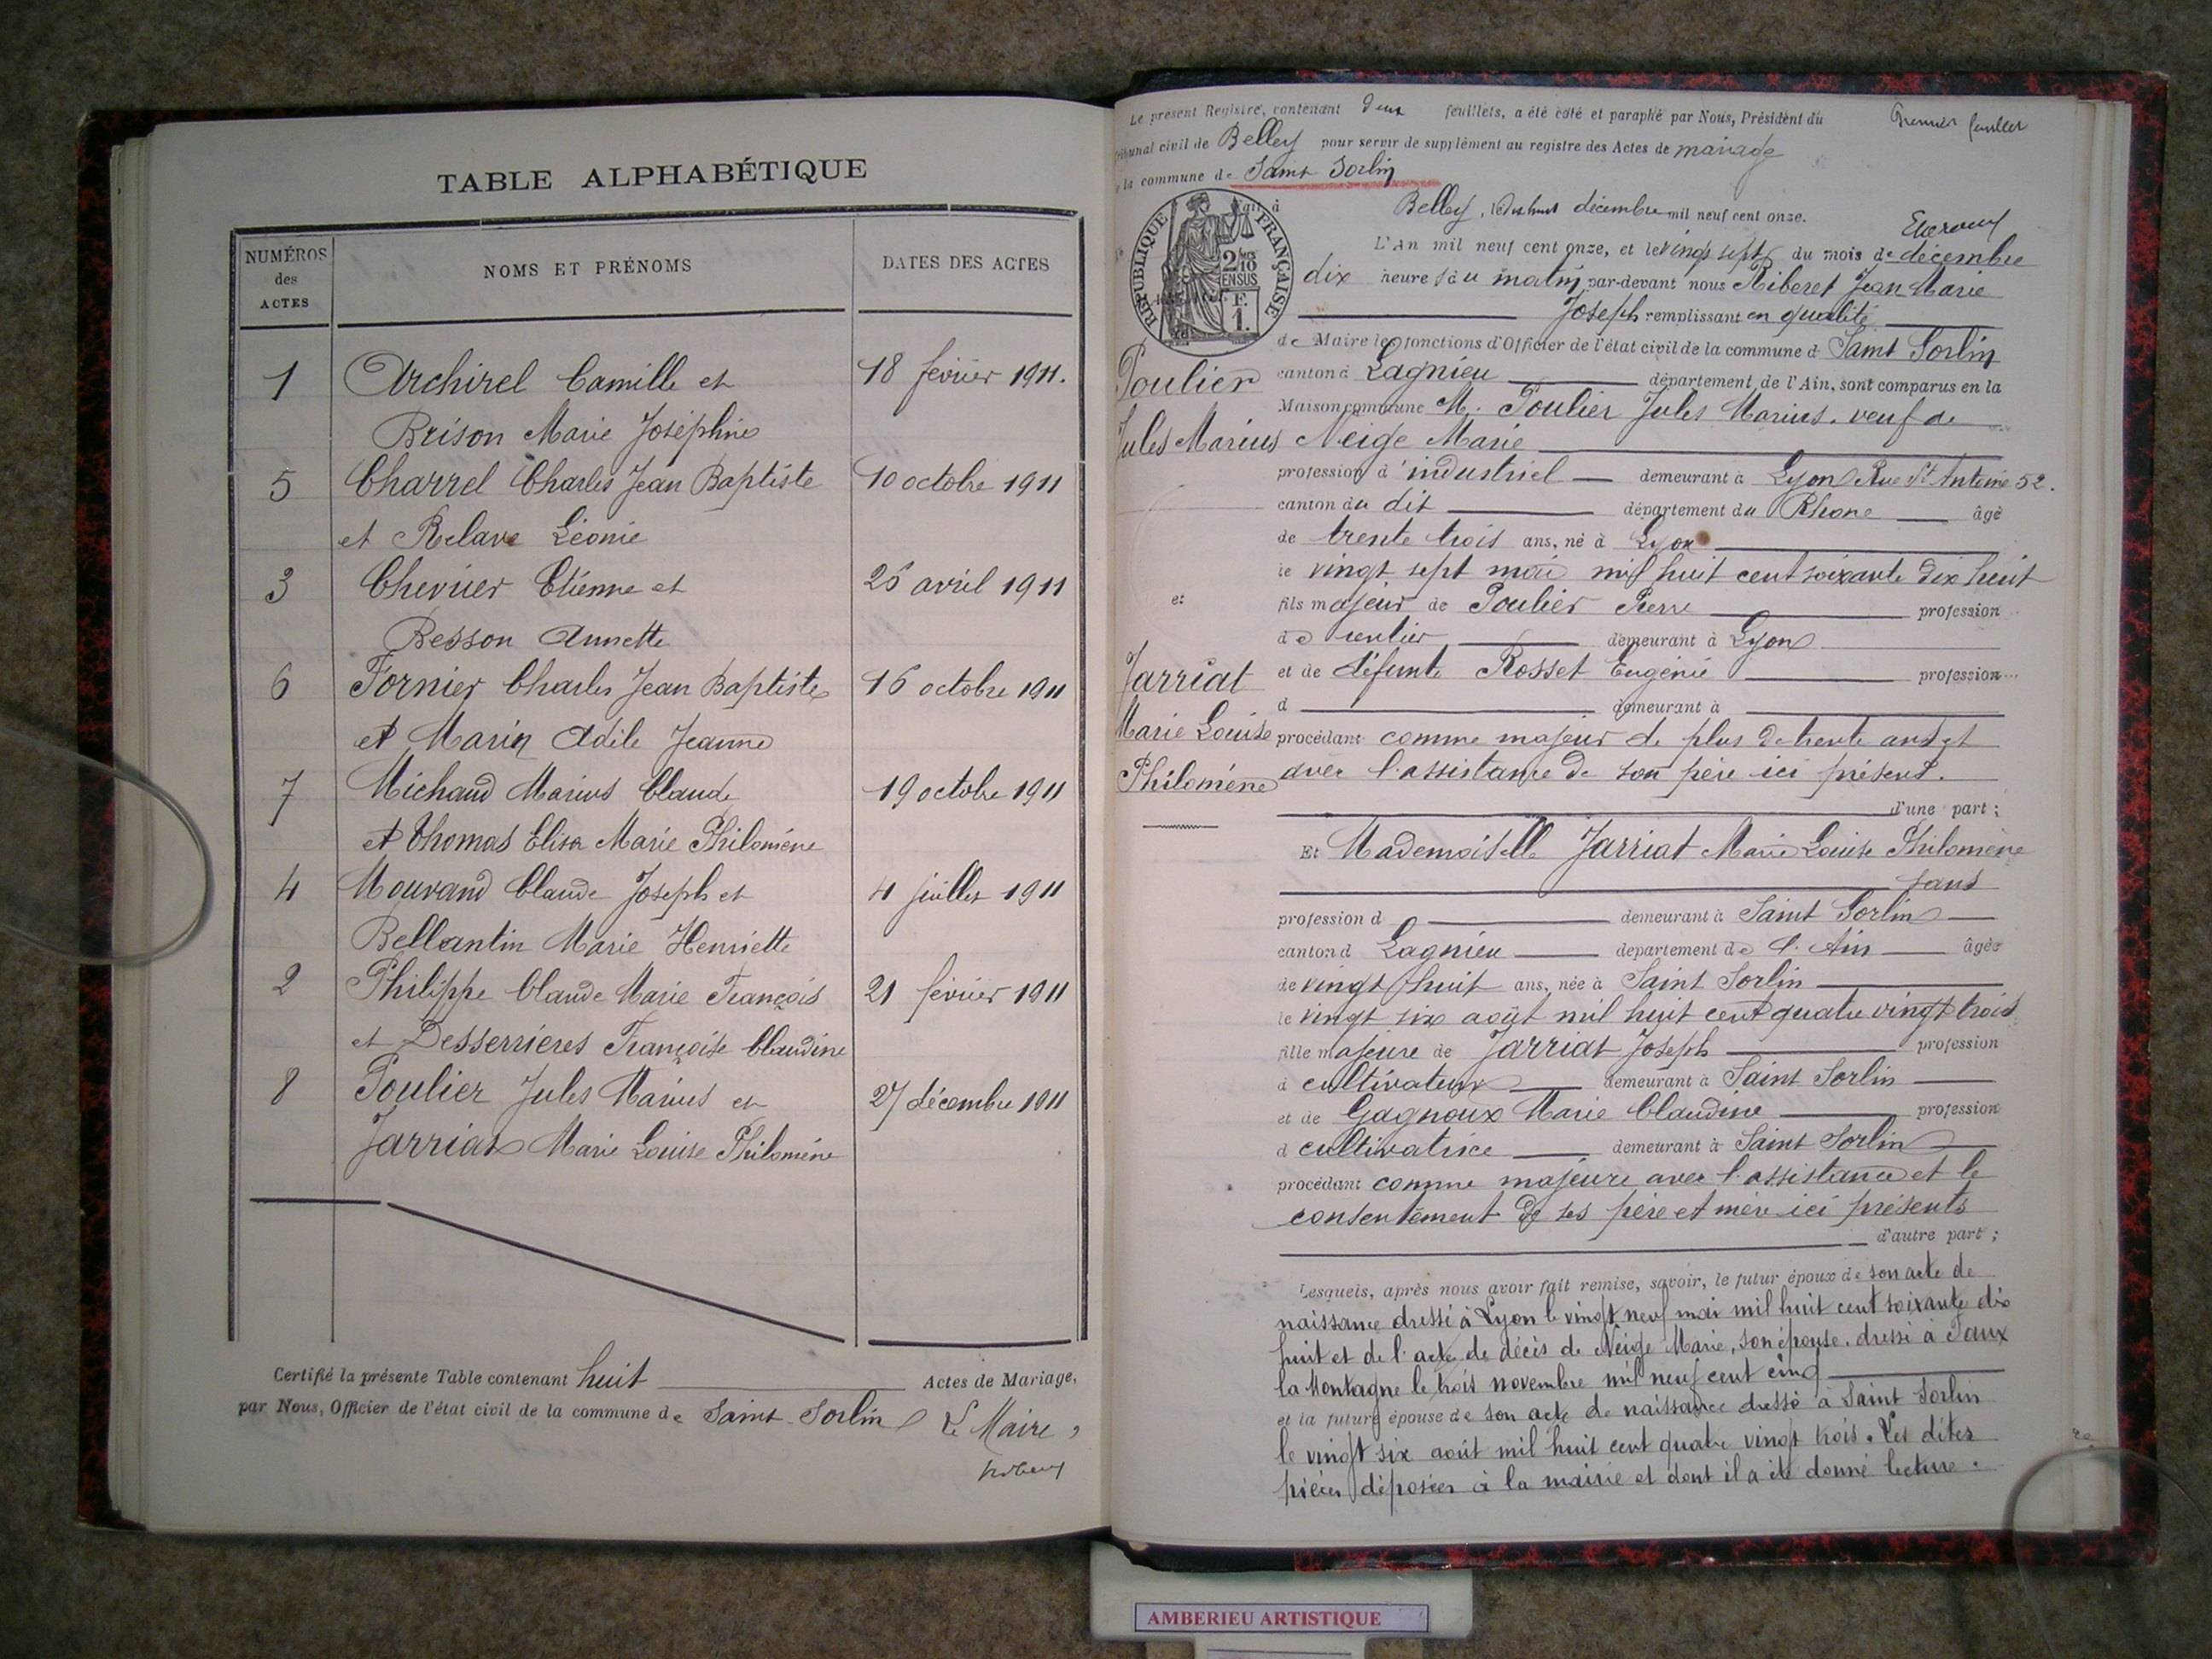 TABLE ALPHABÉTIQUE
NUMÉROS des ACTES
NOMS ET PRÉNOMS
DATES DES ACTES
1 Archirel Camille et 18 février 1911.
Brison Marie Joséphine
5 Charrel Charles Jean Baptiste 10 octobre 1911
et Relave Léonie
3 Chevrier Etienne et 25 avril 1911
Besson Annette
6 Fornier Charles Jean Baptiste 16 octobre 1911
et Marin Adèle Jeanne
7 Michaud Marius Claude 19 octobre 1911
et Thomas Elisa Marie Philomène
4 Mourand Claude Joseph et 4 juillet 1911
Bellantin Marie Henriette
2 Philippe Claude Marie François 21 février 1911
et Desserrières Françoise Claudine
8 Poulier Jules Marius et 27 décembre 1911
Jarriat Marie Louise Philomène
Certifié la présente Table contenant huit Actes de Mariage,
par Nous, Officier de l'état civil de la commune de Saint-Sorlin Le Maire,
Le présent Registre, contenant deux feuillets, a été coté et paraphé par Nous, Président du
Premier feuillet
Tribunal civil de Belley pour servir de supplément au registre des Actes de mariage
de la commune de Saint Sorlin
Fait à Belley, le dix huit décembre mil neuf cent onze.
RÉPUBLIQUE FRANÇAISE
2/10 EN SUS
F.
1.
L'An mil neuf cent onze, et le vingt sept du mois de décembre
dix heures du matin par-devant nous Riberet Jean Marie
Joseph remplissant en qualité
de Maire les fonctions d'Officier de l'état civil de la commune d Saint Sorlin
canton d Lagnieu département de l'Ain, sont comparus en la
Maison commune M. Poulier Jules Marius, veuf de
Neige Marie
profession d'industriel demeurant à Lyon Rue St Antoine 52.
canton du dit département du Rhone âgé
de trente trois ans, né à Lyon
le vingt sept mai mil huit cent soixante dix huit
fils majeur de Poulier Pierre profession
de rentier demeurant à Lyon
et de défunte Rosset Eugénie profession
d demeurant à
procédant comme majeur de plus de trente ans et
avec l'assistance de son père ici présent.
d'une part;
Poulier
Jules Marius
et
Jarriat
Marie Louise
Philomène
Et Mademoiselle Jarriat Marie Louise Philomène
sans
profession d demeurant à Saint Sorlin
canton d Lagnieu département de l'Ain âgée
de vingt huit ans, née à Saint Sorlin
le vingt six août mil huit cent quatre vingt trois
fille majeure de Jarriat Joseph profession
d cultivateur demeurant à Saint Sorlin
et de Gagnoux Marie Claudine profession
d cultivatrice demeurant à Saint Sorlin
procédant comme majeure avec l'assistance et le
consentement de ses père et mère ici présents
d'autre part;
Lesquels, après nous avoir fait remise, savoir, le futur époux de son acte de
naissance dressé à Lyon le vingt neuf mai mil huit cent soixante dix
huit et de l'acte de décès de Neige Marie, son épouse, dressé à Faux
la Montagne le trois novembre mil neuf cent cinq
et la future épouse de son acte de naissance dressé à Saint Sorlin
le vingt six août mil huit cent quatre vingt trois. Les dites
pièces déposées à la mairie et dont il a été donné lecture.
AMBERIEU ARTISTIQUE